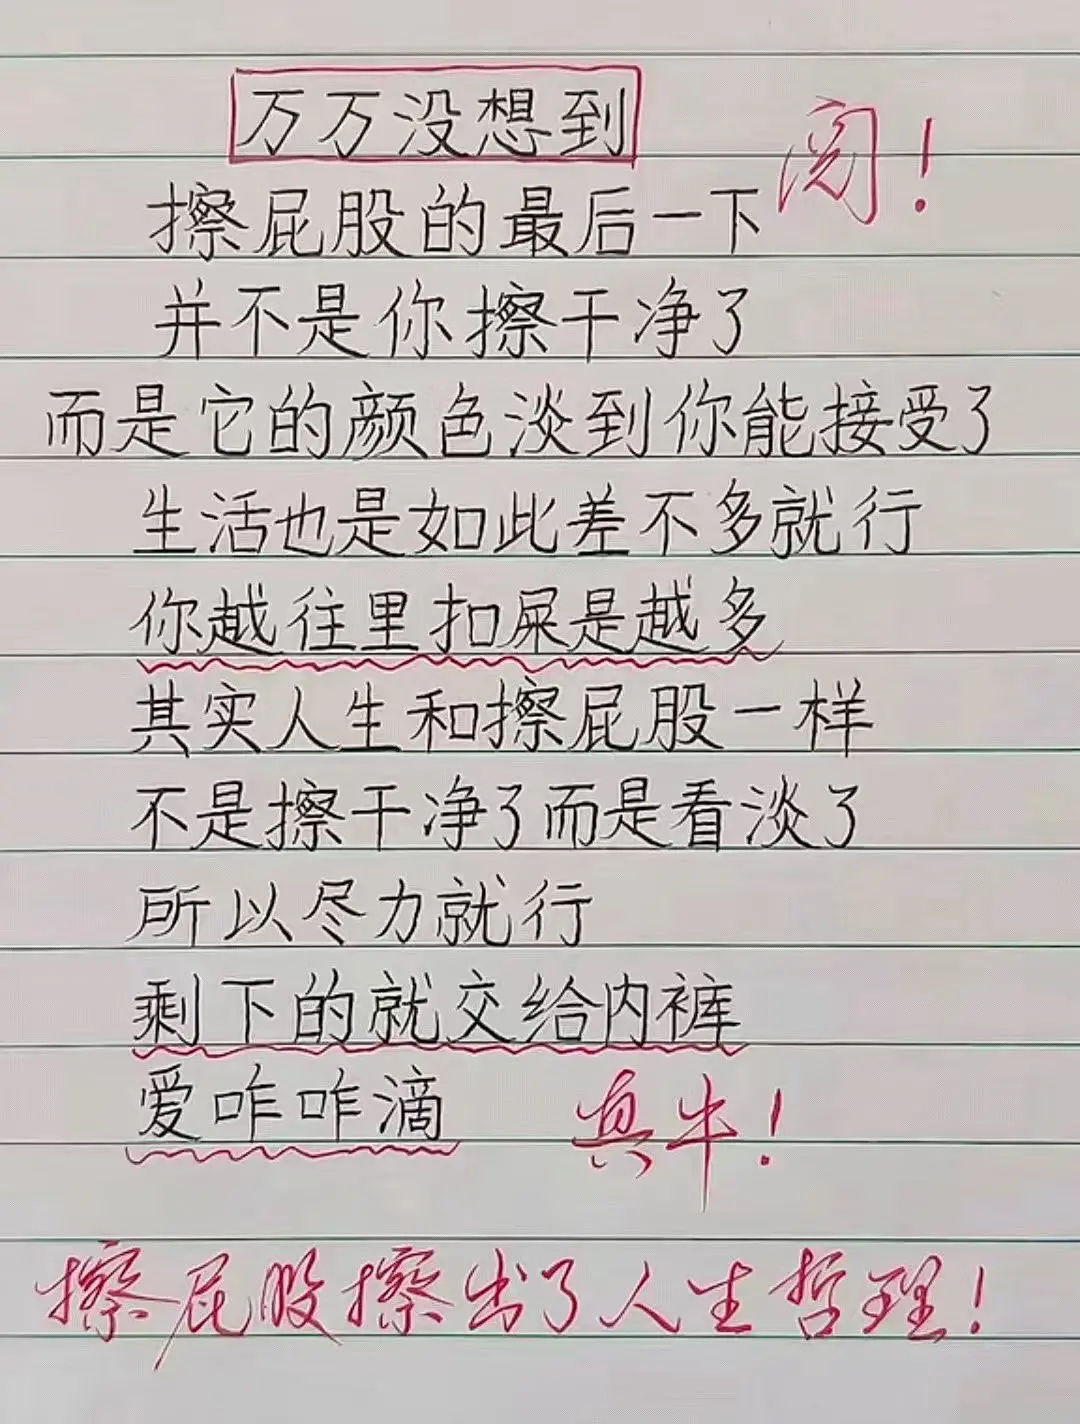 万万没想到
阅！
擦屁股的最后一下
并不是你擦干净了
而是它的颜色淡到你能接受了
生活也是如此差不多就行
你越往里扣屎是越多
其实人生和擦屁股一样
不是擦干净了而是看淡了
所以尽力就行
剩下的就交给内裤
爱咋咋滴
真牛！
擦屁股擦出了人生哲理！